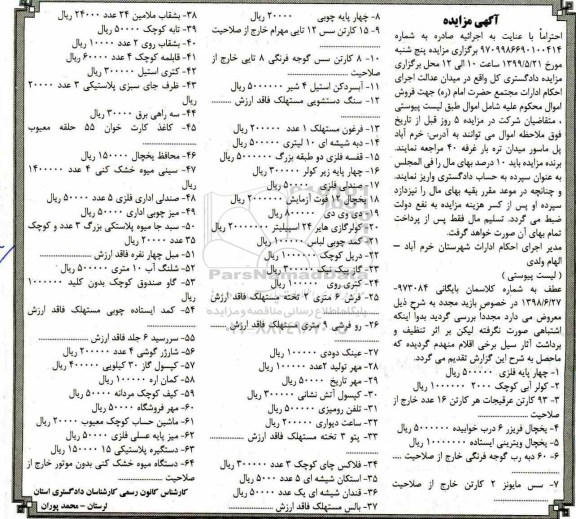 آگهی مزایده
احتراماً با عنایت به اجرائیه صادره به شماره
۹۷۰۹۹۸۶۶۹۰۱۰۰۴۱۴ برگزاری مزایده پنج شنبه
مورخ ۱۳۹۹/۵/۲۱ ساعت ۱۰ الی ۱۲ محل برگزاری
مزایده دادگستری کل واقع در میدان عدالت اجرای
احکام ادارات مجتمع حضرت امام (ره) جهت فروش
اموال محکوم علیه شامل اموال طبق لیست پیوستی
، متقاضیان شرکت در مزایده ۵ روز قبل از تاریخ
فوق ملاحظه اموال می توانند به آدرس: خرم آباد
پل ماسور میدان تره بار غرفه ۴۰ مراجعه نمایند.
برنده مزایده باید ۱۰ درصد بهای مال را فی المجلس
به عنوان سپرده به حساب دادگستری واریز نمایند.
و چنانچه در موعد مقرر بقیه بهای مال را نپردازد
سپرده او پس از کسر هزینه مزایده به نفع دولت
ضبط می گردد. تسلیم مال فقط پس از پرداخت
تمام بهای آن صورت خواهد گرفت.
مدیر اجرای احکام ادارات شهرستان خرم آباد –
الهام ولدی
( لیست پیوستی )
عطف به شماره کلاسمان بایگانی ۹۷۳۰۸۴-
۱۳۹۸/۶/۲۷ در خصوص بازید مجدد به شرح ذیل
معروض می دارد مجدداً بررسی گردید بدوا اینکه
اشتباهی صورت نگرفته لیکن بر اثر تنظیف و
برداشت آثار سیل برخی اقلام منهدم گردیده که
ماحصل به شرح این گزارش تقدیم می گردد.
۱- چهار پایه فلزی ۵۰۰۰۰۰ ریال
۲- کولر آبی کوچک ۲۰۰۰ ۱۰۰۰۰۰۰ ریال
۳- ۹۳ کارتن عرقیجات هر کارتن ۱۶ عدد خارج از
صلاحیت
۴- یخچال فریزر ۶ درب خوابیده ۵۰۰۰۰۰۰ ریال
۵- یخچال ویترینی ایستاده ۱۰۰۰۰۰۰۰ ریال
۶- ۶۰ دبه رب گوجه فرنگی خارج از صلاحیت ....
۷- سس مایونز ۲ کارتن خارج از صلاحیت
۸- چهار پایه چوبی ۲۰۰۰۰ ریال
۹- ۱۵ کارتن سس ۱۲ تایی مهرام خارج از صلاحیت
۱۰- ۸ کارتن سس گوجه فرنگی ۸ تایی خارج از
صلاحیت
۱۱- آبسردکن استیل ۴ شیر ۵۰۰۰۰۰۰ ریال
۱۲- سنگ دستشویی مستهلک فاقد ارزش
۱۳- فرغون مستهلک ۱ عدد ۲۰۰۰۰۰ ریال
۱۴- دبه شیشه ای ۱۰ لیتری ۵۰۰۰۰ ریال
۱۵- قفسه فلزی دو طبقه بزرگ ۵۰۰۰۰۰ ریال
۱۶- چهار پایه زیر کولر ۳۰۰۰۰۰ ریال
۱۷- صندلی فلزی ۵۰۰۰۰ ریال
۱۸- یخچال ۱۲ فوت آزمایش ۲۰۰۰۰۰۰ ریال
۱۹- دی وی دی ۸۰۰۰۰۰ ریال
۲۰- کولرگازی هایر ۲۴ اسپیلیتر ۲۰۰۰۰۰۰۰ ریال
۲۱- کمد چوبی لباس ۱۰۰۰۰۰ ریال
۲۲- دریل کوچک ۱۰۰۰۰۰۰ ریال
۲۳- گاز پیک نیک ۳۰۰۰۰۰ ریال
۲۴- کتری روی ۱۰۰۰۰۰ ریال
۲۵- فرش ۶ متری ۲ تخته مستهلک فاقد ارزش
۲۶- رو فرشی ۹ متری مستهلک فاقد ارزش
۲۷- عینک دودی ۱۰۰۰۰۰ ریال
۲۸- مهر تولید ۲عدد ۱۰۰۰۰ ریال
۲۹- مهر تاریخ ۵۰۰۰۰ ریال
۳۰- کپسول آتش نشانی ۳۰۰۰۰۰ ریال
۳۱- تلفن رومیزی ۵۰۰۰۰۰ ریال
۳۲- ساعت دیواری ۲۰۰۰۰۰ ریال
۳۳- پتو ۳ تخته مستهلک فاقد ارزش
۳۴- فلاکس چای کوچک ۳ عدد ۳۰۰۰۰۰ ریال
۳۵- استکان شیشه ای ۵ عدد ۵۰۰۰ ریال
۳۶- قندان شیشه ای یک عدد ۵۰۰۰۰ ریال
۳۷- بالس مستهلک فاقد ارزش
۳۸- بشقاب ملامین ۲۴ عدد ۲۴۰۰۰ ریال
۳۹- تابه کوچک ۵۰۰۰۰ ریال
۴۰- بشقاب روی ۲ عدد ۱۰۰۰۰ ریال
۴۱- قابلمه کوچک ۴ عدد ۶۰۰۰۰ ریال
۴۲- کتری استیل ۳۰۰۰۰۰ ریال
۴۳- ظرف جای سبزی پلاستیکی ۳ عدد ۲۰۰۰۰
ریال
۴۴- سه راهی برق ۳۰۰۰۰ ریال
۴۵- کاغذ کارت خوان ۵۵ حلقه معیوب
۴۶- محافظ یخچال ۱۵۰۰۰۰ ریال
۴۷- سینی میوه خشک کنی ۴ عدد ۱۴۰۰۰۰۰
ریال
۴۸- صندلی اداری فلزی ۵ عدد ۵۰۰۰۰۰ ریال
۴۹- میز چوبی اداری ۵۰۰۰۰ ریال
۵۰- سبد جا میوه پلاستکی بزرگ ۳ عدد و کوچک
۳۵ عدد ۲۰۰۰۰ ریال
۵۱- مبل چهار نفره فاقد ارزش
۵۲- شلنگ آب ۱۰ متری ۵۰۰۰۰ ریال
۵۳- گاو صندوق کوچک بدون کلید ۱۰۰۰۰۰۰
ریال
۵۴- کمد ایستاده چوبی مستهلک فاقد ارزش
۵۵- سررسید ۶ جلد فاقد ارزش
۵۶- شارژر گوشی ۴ عدد ۲۰۰۰۰۰ ریال
۵۷- کپسول گاز ۳۰ کیلویی ۴۰۰۰۰۰ ریال
۵۸- کمان اره ۱۰۰۰۰۰ ریال
۵۹- کیف کوچک مردانه ۵۰۰۰۰ ریال
۶۰- مهر فروشگاه ۵۰۰۰۰ ریال
۶۱- ماشین حساب کوچک معیوب ۲۰۰۰۰ ریال
۶۲- میز پایه عسلی فلزی ۵۰۰۰۰ ریال
۶۳- دستگیره پلاستیکی ۱۵ ۱۵۰۰۰۰ ریال
۶۴- دستگاه میوه خشک کنی بدون موتور خارج از
صلاحیت
کارشناس کانون رسمی کارشناسان دادگستری استان
لرستان - محمد پوران
ParsNamadData
پایگاه اطلاع رسانی مناقصه و مزایده